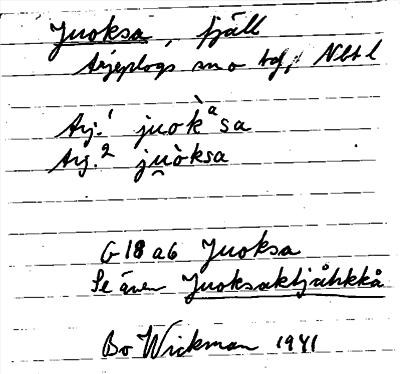 Juoksa, fjäll
Arjeplogs sn o tg, Nbt l
Arj.¹ juok̀ᵃsa
Arj.² ju̯òksa
G 18 a6 Juoksa
Se även Juoksaktjåhkkå
Bo Wickman 1941